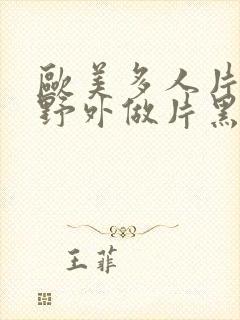 歐美多人片
野外做片黑
王菲